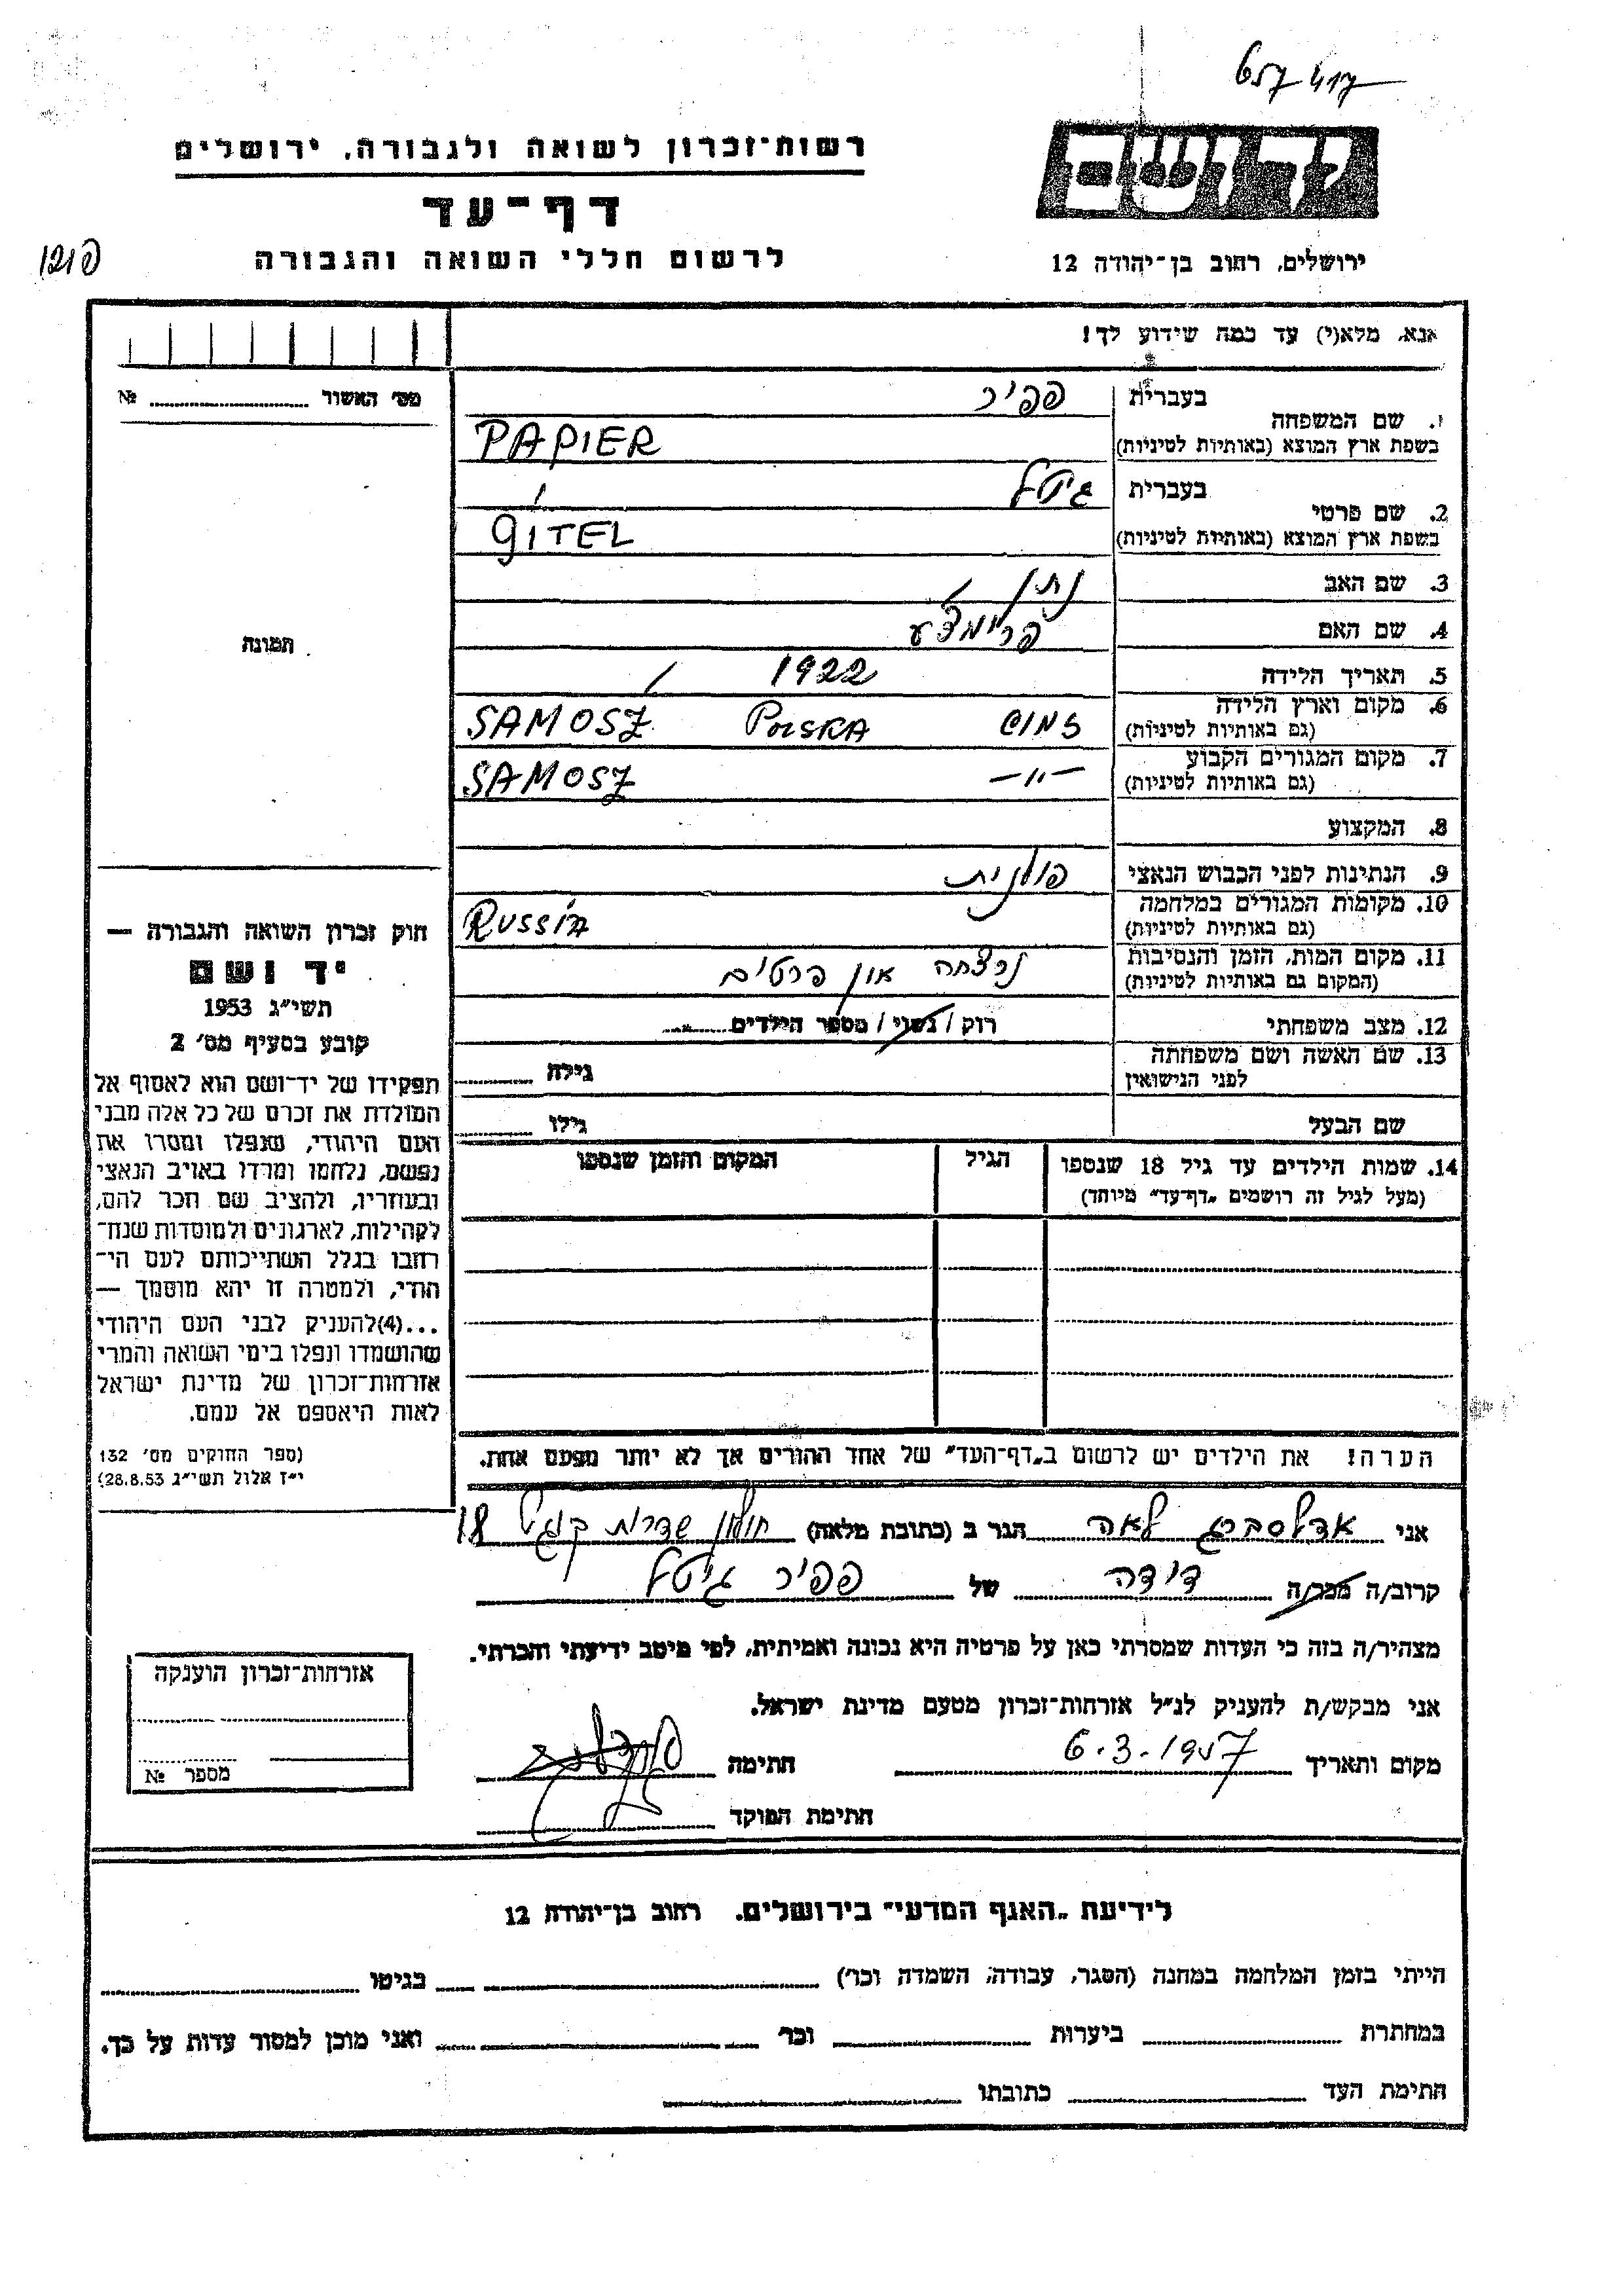 רשות־זכרון לשואה ולגבורה, ירושלים
דף־עד
לרשום חללי השואה והגבורה
ידושם
ירושלים, רחוב בן־יהודה 12
אנא, מלא(י) עד כמה שידוע לך!
מס׳ האשור № 
1. שם המשפחה בעברית פפיר
בשפת ארץ המוצא (באותיות לטיניות) PAPIER
2. שם פרטי בעברית גיטל
בשפת ארץ המוצא (באותיות לטיניות) GITEL
3. שם האב נתן
4. שם האם
5. תאריך הלידה 1922
6. מקום וארץ הלידה
(גם באותיות לטיניות) SAMOSZ POLSKA
7. מקום המגורים הקבוע
(גם באותיות לטיניות) SAMOSZ —״—
8. המקצוע
9. הנתינות לפני הכבוש הנאצי פולנית
10. מקומות המגורים במלחמה
(גם באותיות לטיניות) RUSSIA
11. מקום המות, הזמן והנסיבות
(המקום גם באותיות לטיניות) נרצחה און פרטים
12. מצב משפחתי רוק / נשוי / מספר הילדים
13. שם האשה ושם משפחתה
לפני הנישואין גילה
שם הבעל גילו
14. שמות הילדים עד גיל 18 שנספו הגיל המקום והזמן שנספו
(מעל לגיל זה רושמים „דף־עד״ מיוחד)
הערה! את הילדים יש לרשום ב„דף־העד״ של אחד ההורים אך לא יותר מפעם אחת.
תמונה
חוק זכרון השואה והגבורה —
יד ושם
תשי״ג 1953
קובע בסעיף מס׳ 2
תפקידו של יד־ושם הוא לאסוף אל
המולדת את זכרם של כל אלה מבני
העם היהודי, שנפלו ומסרו את
נפשם, נלחמו ומרדו באויב הנאצי
ובעוזריו, ולהציב שם וזכר להם,
לקהילות, לארגונים ולמוסדות שנח־
רחבו בגלל השתייכותם לעם הי־
הודי, ולמטרה זו יהא מוסמך —
...(4)להעניק לבני העם היהודי
שהושמדו ונפלו בימי השואה והמרי
אזרחות־זכרון של מדינת ישראל
לאות היאספם אל עמם.
(ספר החוקים מס׳ 132
י״ז אלול תשי״ג 28.8.53)
אני לאה הגר ב (כתובת מלאה) חולון שדרות קוגל 18
קרוב/ה מכר/ה דודה של פפיר גיטל
מצהיר/ה בזה כי העדות שמסרתי כאן על פרטיה היא נכונה ואמיתית, לפי מיטב ידיעתי והכרתי.
אני מבקש/ת להעניק לנ״ל אזרחות־זכרון מטעם מדינת ישראל.
מקום ותאריך 6.3.1957 חתימה
חתימת הפוקד
אזרחות־זכרון הוענקה
מספר №
לידיעת „האגף המדעי״ בירושלים, רחוב בן־יהודה 12
הייתי בזמן המלחמה במחנה (הסגר, עבודה, השמדה וכו׳) בגיטו
במחתרת ביערות וכו׳ ואני מוכן למסור עדות על כך.
חתימת העד כתובתו